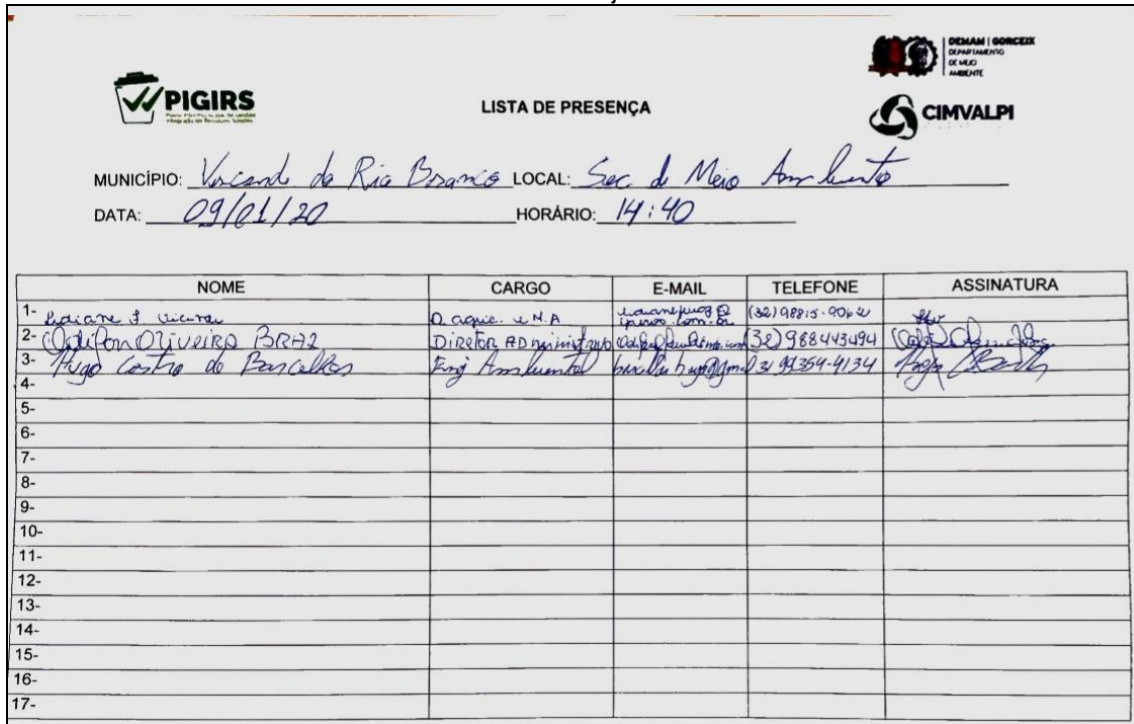 DEMAM | GORCEIX
DEPARTAMENTO
DE MEIO
AMBIENTE
PIGIRS
LISTA DE PRESENÇA
CIMVALPI
MUNICÍPIO: Visconde do Rio Branco LOCAL: Sec. de Meio Ambiente
DATA: 09/01/20 HORÁRIO: 14:40
NOME CARGO E-MAIL TELEFONE ASSINATURA
1- Lidiane F. D. agric. e M.A (32) 98815-9062
2- Oliveira BRAZ Diretor Administrativo (32) 988443494
3- Hugo Castro de Barcellos Eng Ambiental 31 99354-9134
4-
5-
6-
7-
8-
9-
10-
11-
12-
13-
14-
15-
16-
17-